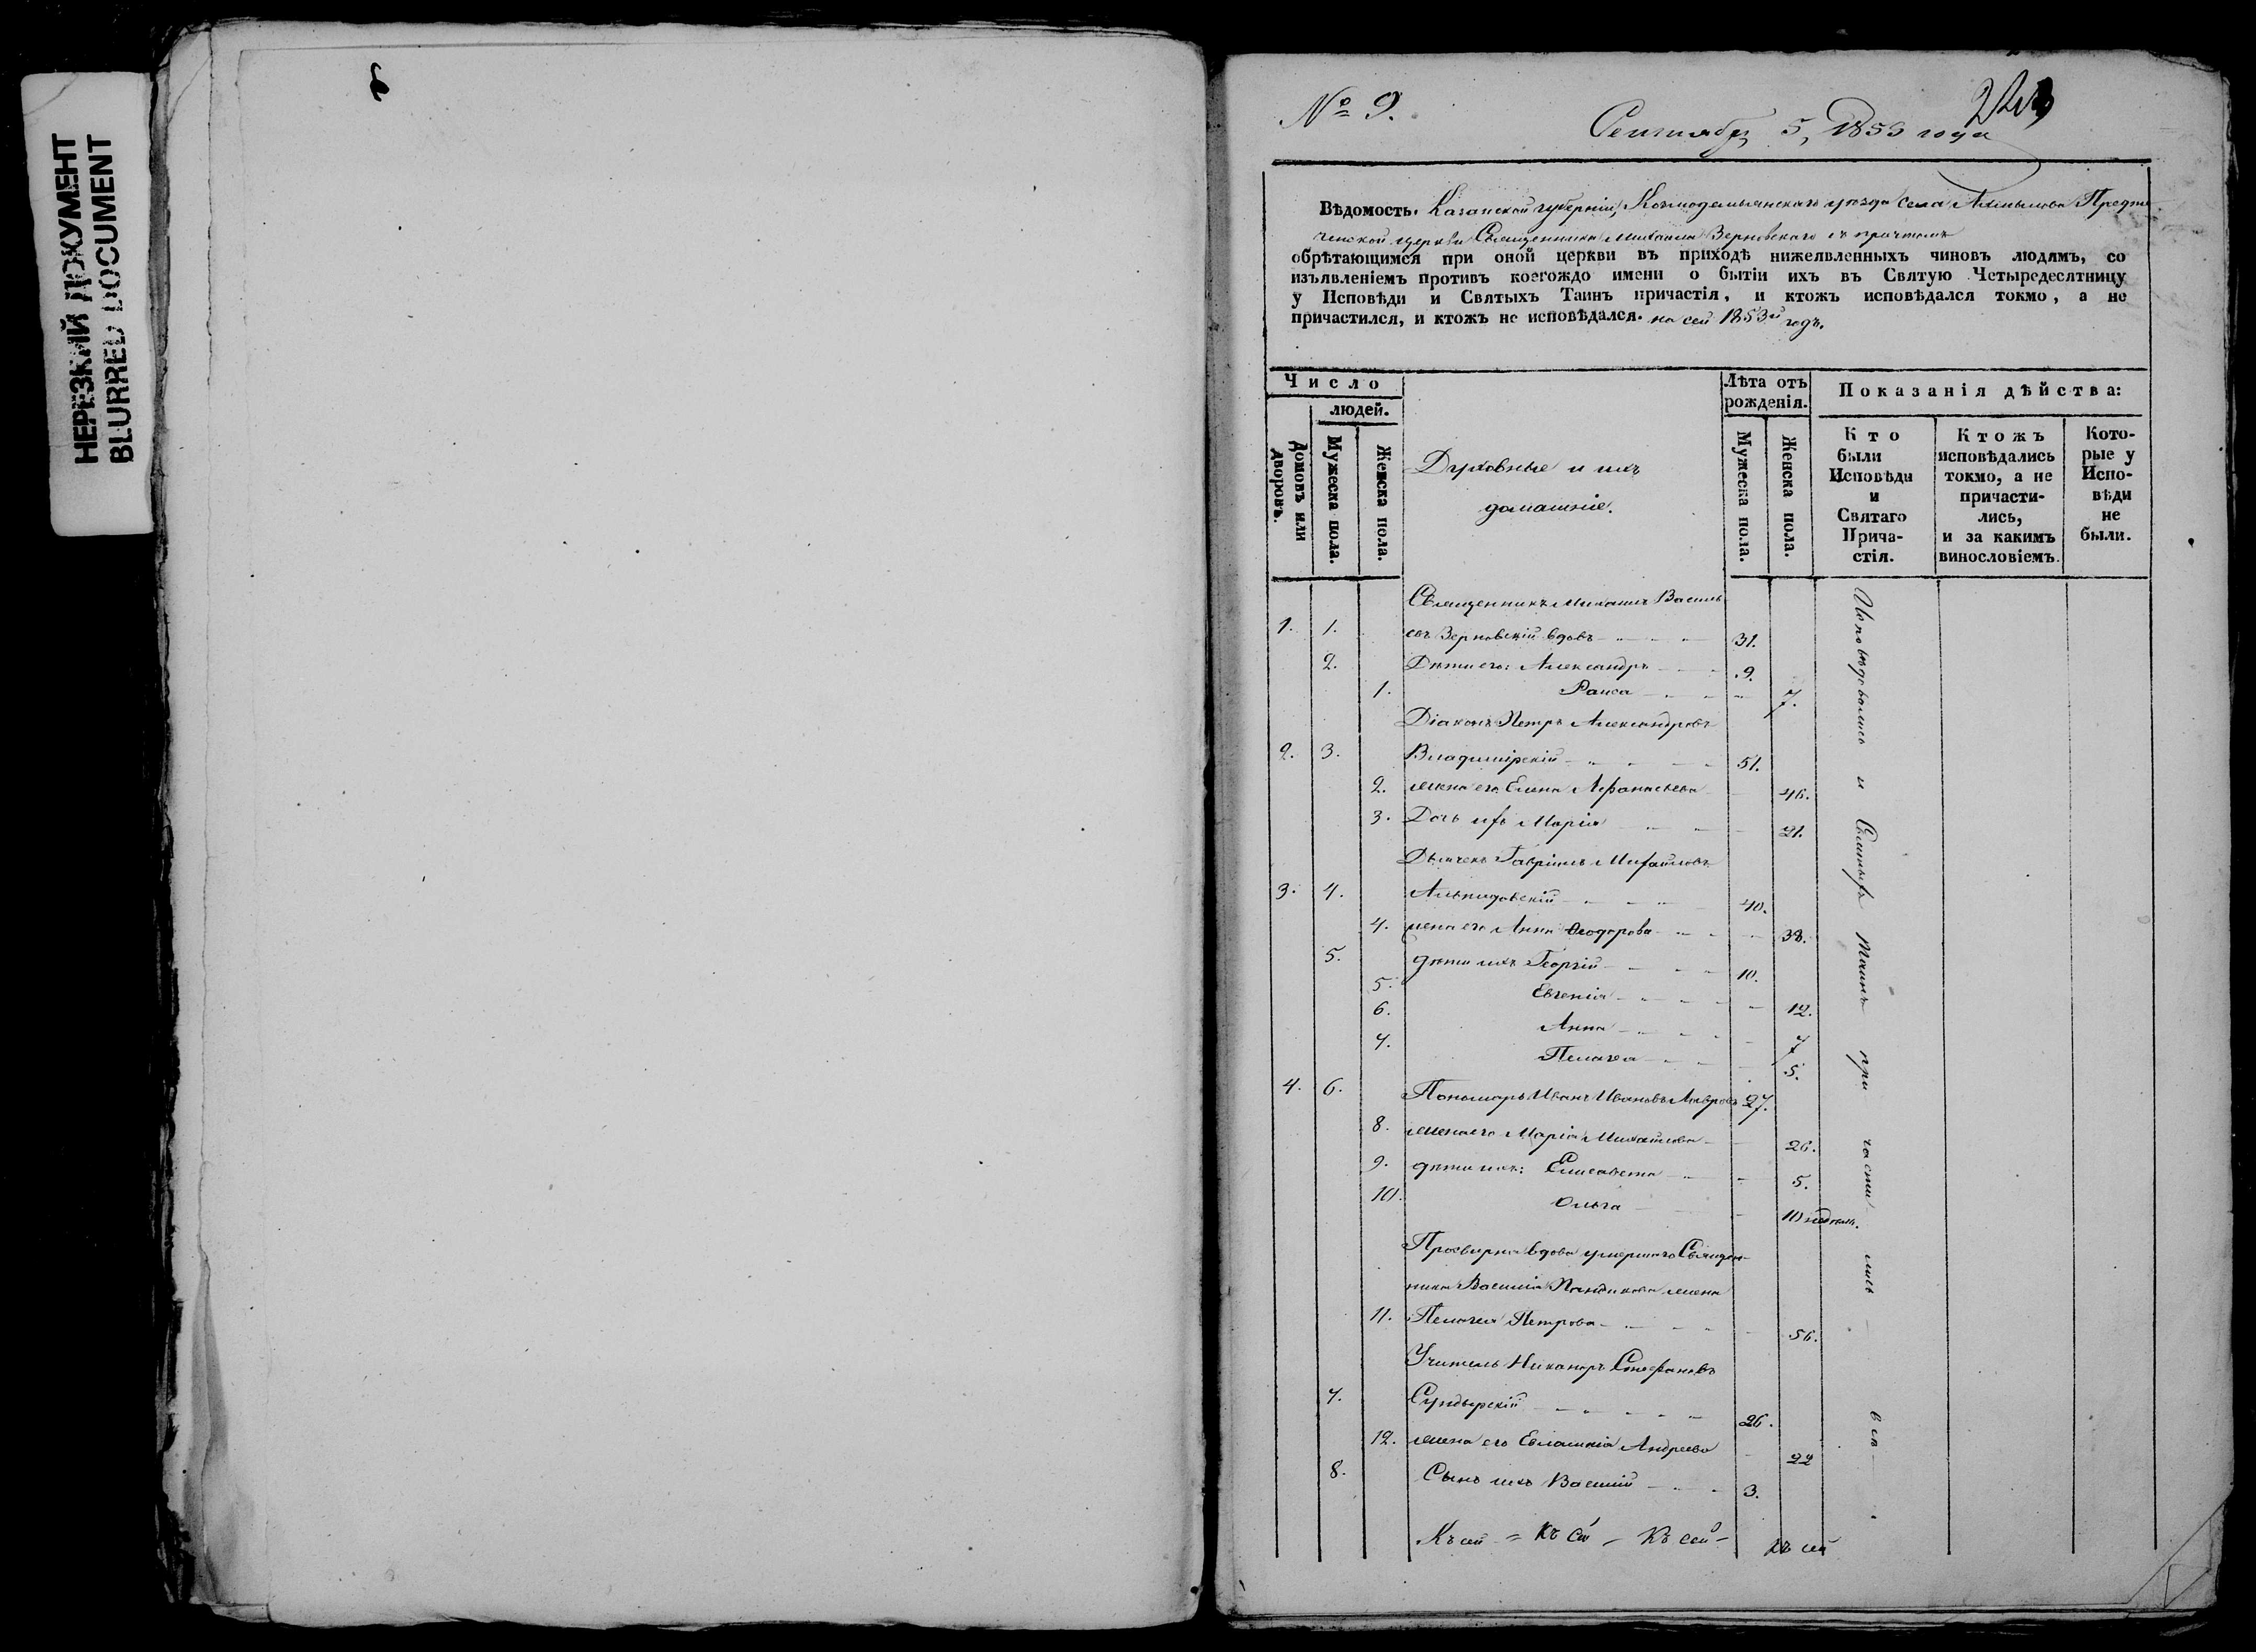 НЕРЕЗКИЙ ДОКУМЕНТ
BLURRED DOCUMENT
№ 9.
Сентября 5, 1853 года
Вѣдомость. Казанской губерніи, Козмодемьянскаго уѣзда села Ахмылова Предте
ченской церкви Священника Михаила Зерновскаго съ причтомъ
обрѣтающимся при оной церкви въ приходѣ нижеявленныхъ чиновъ людямъ, со
изъявленіемъ противъ коегождо имени о бытіи ихъ въ Святую Четыредесятницу
у Исповѣди и Святыхъ Таинъ причастія, и ктожъ исповѣдался токмо, а не
причастился, и ктожъ не исповѣдался. на сей 1853й годъ.
Число
людей.
Домовъ или дворовъ.
Мужеска пола.
Женска пола.
Духовные и ихъ
домашніе.
Лѣта отъ рожденія.
Мужеска пола.
Женска пола.
Показанія дѣйства:
Кто были Исповѣди и Святаго Прича-стія.
Ктожъ исповѣдались токмо, а не причасти-лись, и за какимъ винословіемъ.
Кото-рые у Испо-вѣди не были.
Священникъ Михаилъ Василь
1. 1. евъ Зерновскій вдовъ 31.
2. Дѣти его: Александръ 9.
1. Раиса 7.
Діаконъ Петръ Александровъ
2. 3. Владимірскій 51.
2. жена его Елена Афанасьева 46.
3. Дочь ихъ Марія 21.
Дьячекъ Гавріилъ Михайловъ
3. 4. 40.
4. жена его Анна Ѳеодорова 38.
5. дѣти ихъ Георгій 10.
5. Евгенія 12.
6. Анна 7
7. Пелагея 5.
4. 6. Пономарь Иванъ Ивановъ Лавровъ 27.
8. жена его Марія Михайлова 26.
9. дѣти ихъ: Елисавета 5.
10. Ольга 10 недѣль.
Просвирня вдова умершаго Священ-
ника Василія жена
11. Пелагея Петрова 56.
Учитель Никаноръ Стефановъ
7. Сундырскій 26.
12. жена его Евлампія Андреева 22
8. Сынъ ихъ Василій 3.
Исповѣдовались и Святыхъ Таинъ при части лись всѣ
Къ сей = Къ сей - Къ сей - Къ сей